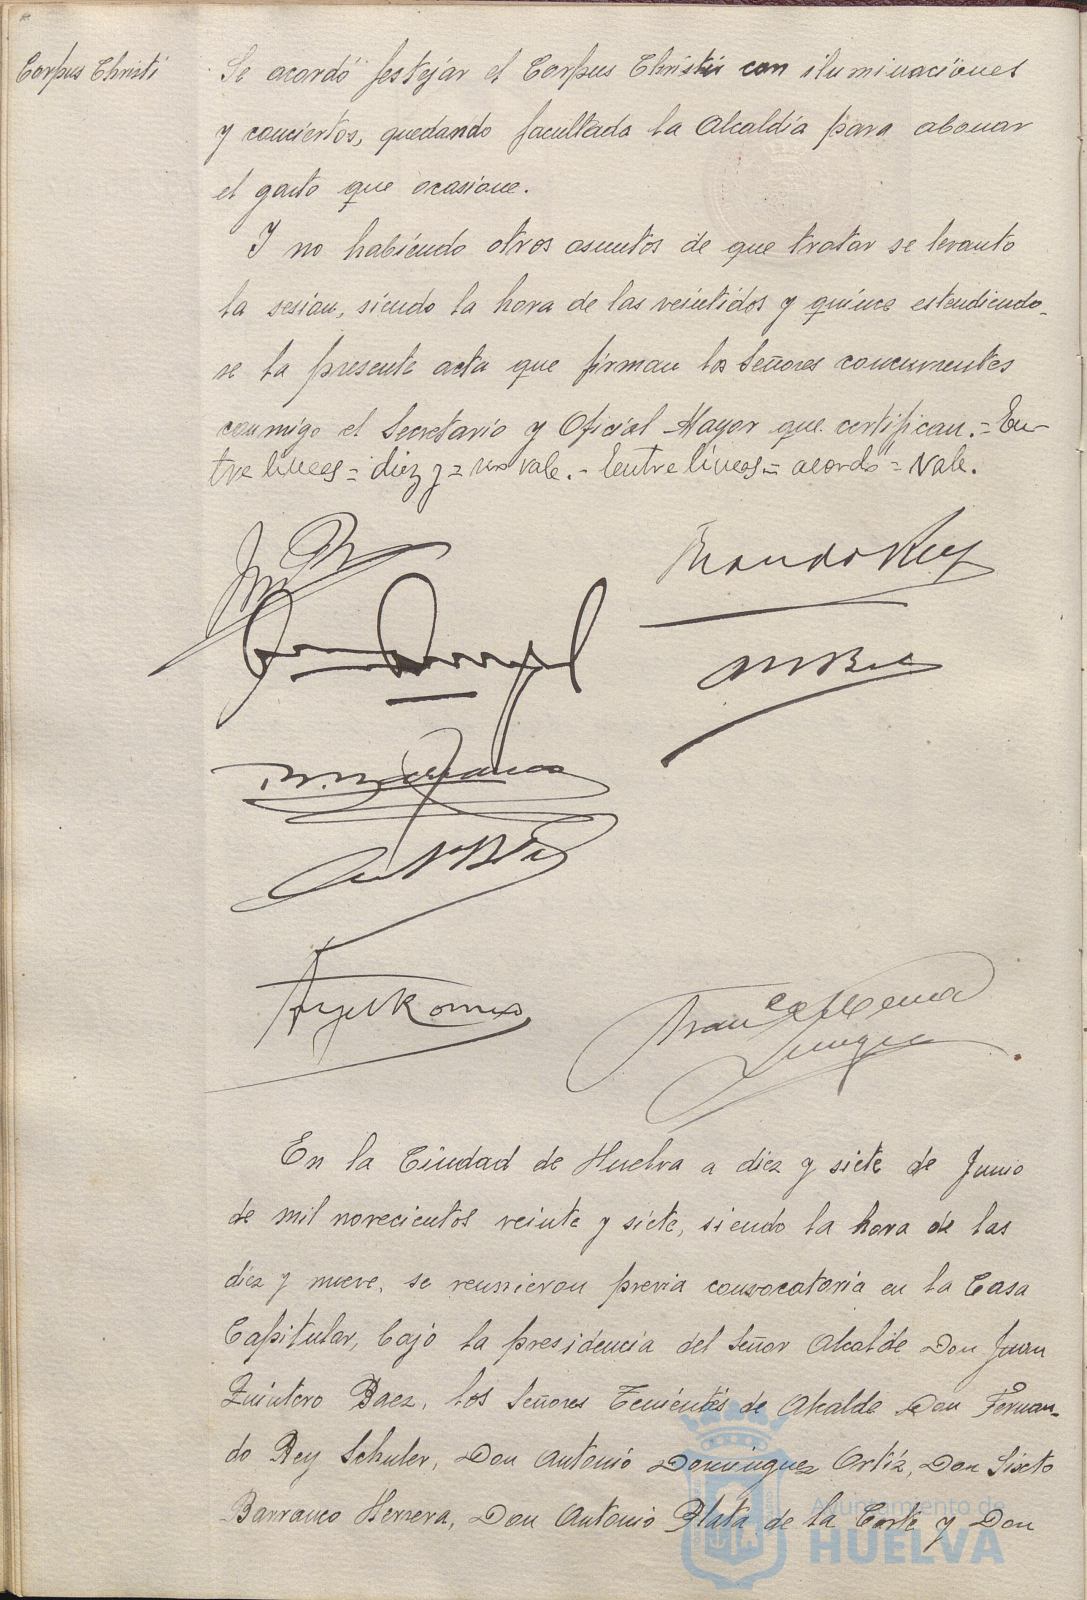 Corpus Christi
Se acordó festejar el Corpus Christi con iluminaciones
y conciertos, quedando facultada la Alcaldía para abonar
el gasto que ocasione.
Y no habiendo otros asuntos de que tratar se levanto
la sesion, siendo la hora de las veintidos y quince estendiendo-
se la presente acta que firman los Señores concurrentes
conmigo el Secretario y Oficial Mayor que certifican.=En-
tre lineas = diez y = vale. - Eentre lineas = acordo = Vale.
Fernando Rey
Angel Romero
En la Ciudad de Huelva a diez y siete de Junio
de mil novecientos veinte y siete, siendo la hora de las
diez y nueve, se reunieron previa convocatoria en la Casa
Capitular, bajo la presidencia del Señor Alcalde Don Juan
Quintero Baez, los Señores Tenientes de Alcalde Don Fernan-
do Rey Schuler, Don Antonio Dominguez Ortíz, Don Sixto
Barranco Herrera, Don Antonio Plata de la Corte y Don
Ayuntamiento de
HUELVA